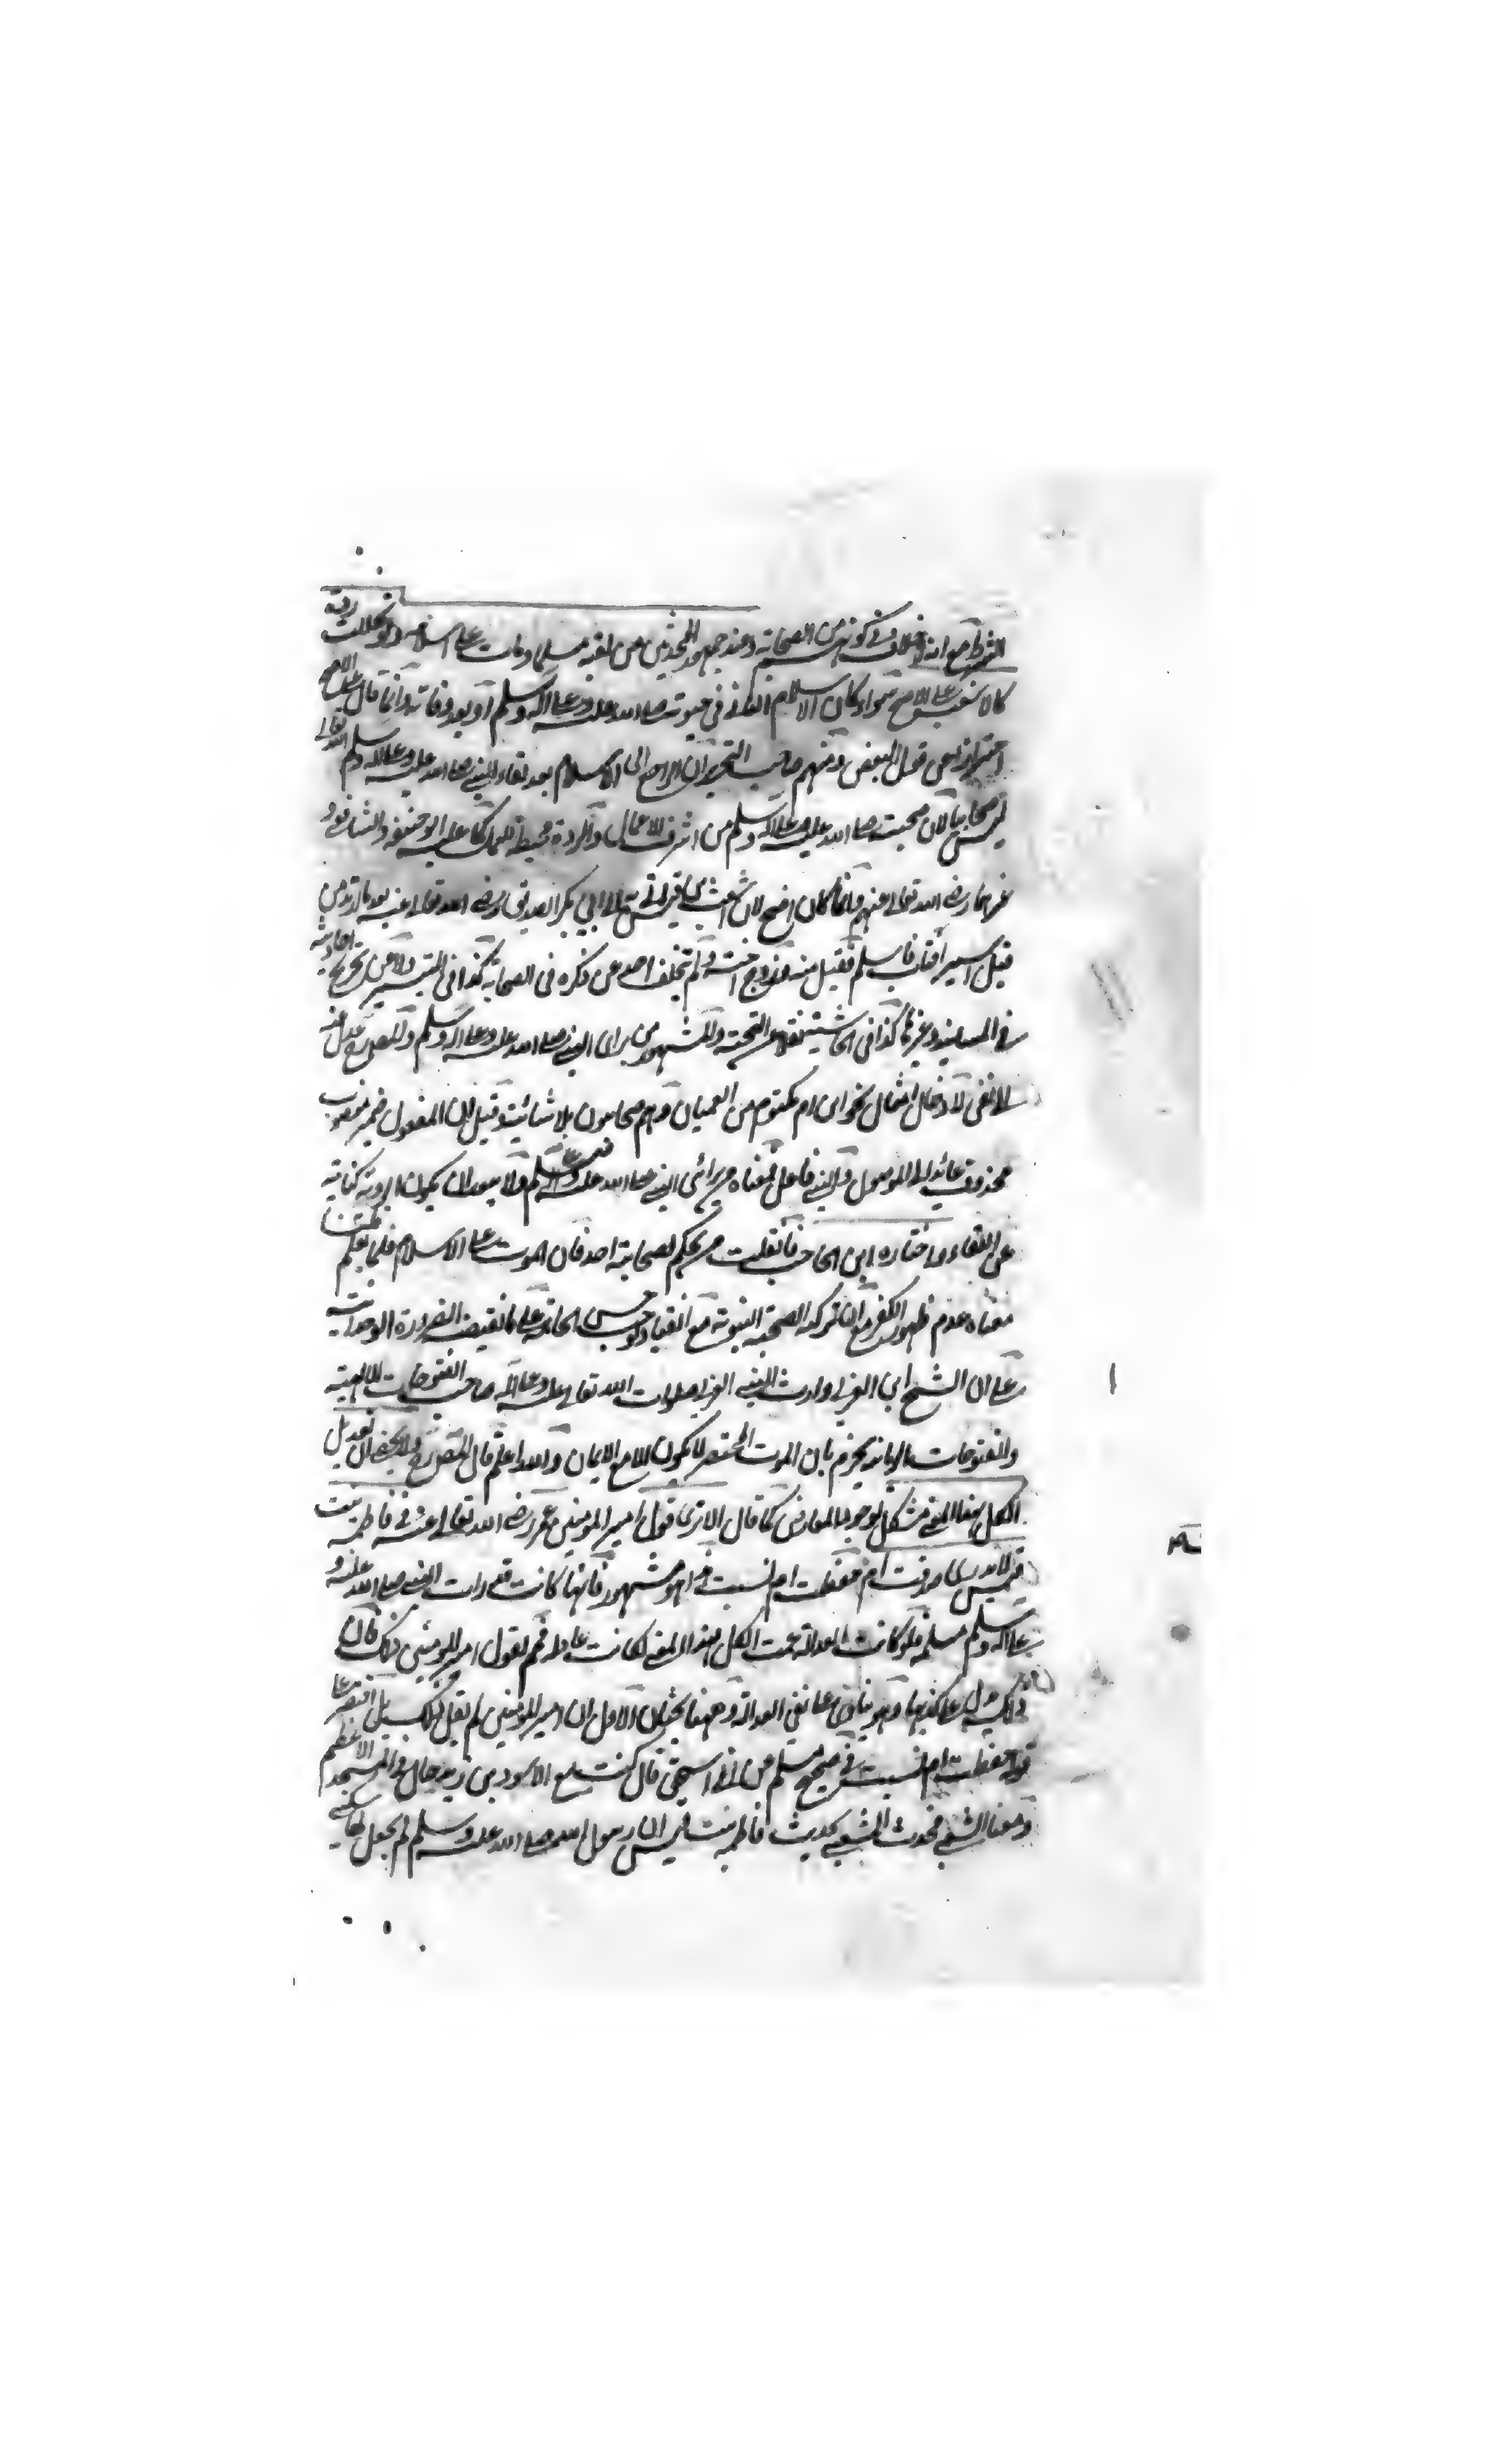 الشرط مع انه لا خلاف في كونهم من الصحابة وعند جمهور المحدثين من لقيه مسلما ومات على اسلامه ولو تخللت ردة
كالاشعث على الاصح سواء كان الاسلام الثاني في حيوته صلى الله عليه وعلى آله وسلم أو بعد وفاته وانما قال على الاصح
احترازا عن قول البعض ومنهم صاحب التحرير ان الراجع الى الاسلام بعد لقاء النبي صلى الله عليه وعلى اله وسلم
ليس صحابيا لان صحبته صلى الله عليه وعلى اله وسلم من اشرف الاعمال والردة محبطة للعمل كما عليه ابو حنيفة والشافعي و
غيرهما رضي الله تعالى عنهم وانما كان اصح لان اشعث بن قيس اتي به الى ابي بكر الصديق رضي الله تعالى عنه بعد ما ارتد من
قبل اسير افتاب فاسلم فقبل منه وزوج اخته ولم يتخلف احد عن ذكره في الصحابة كذا في التيسير ولا عن تخريج احاديثه
في المسانيد وغيرها كذا في الحاشية نقلا عن التحفة والمشهور من راى النبي صلى الله عليه وعلى اله وسلم والمصنف عدل عنه
لا نفي لادخال امثال نحو ابن ام مكتوم من العميان وهم صحابيون بلا شائبة وقيل ان المفعول ضمير منصوب
محذوف عائد الى الموصول والنبي فاعل فمعناه من رائ النبي صلى الله عليه وعلى آله وسلم ولا يبعد ان يكون الروية كناية
عن اللقاء واختاره ابن الحاجب فان قلت من يحكم لصحابية احد فان الموت على الاسلام قلما يعلم قلت
معناه عدم ظهور الكفر مع ان بركة الصحبة النبوية مع انقياد يوجب حسن الخاتمة على ما يقتضيه الضرورة الوجدانية
على ان الشيخ ابن العربي وارث النبي العربي صلوات الله تعالى عليه وعلى آله صاحب الفتوحات الالهية
والفتوحات الربانية يجزم بان الموت المحتضر لا يكون الا مع الايمان والله اعلم قال المصنف ولا يخفى ان تعديل
الكل بهذا المعنى مشكل لوجود المعارض كما قال الا ترى قول امير المؤمنين عمر رضي الله تعالى عنه في فاطمة بنت
قيس لا ندري اصدقت ام حفظت ام نسيت فما هو مشهور فانها كانت قد رات النبي صلى الله عليه و
على اله وسلم مسلمة فلو كانت العدالة عمت الكل بهذا المعنى لكانت عادلة فلم يقول امير المؤمنين ذلك فان
ذلك يدل على كذبها وهو ينادي على نفي العدالة وههنا بحثان الاول ان امير المؤمنين لم يقل كذلك بل اقتصر على
قوله حفظت ام نسيت في صحيح مسلم عن ابي اسحق قال كنت مع الاسود بن يزيد جالسا في المسجد الاعظم
ومعنا الشعبي فحدث الشعبي بحديث فاطمة بنت قيس ان رسول الله صلى الله عليه وسلم لم يجعل لها سكنى